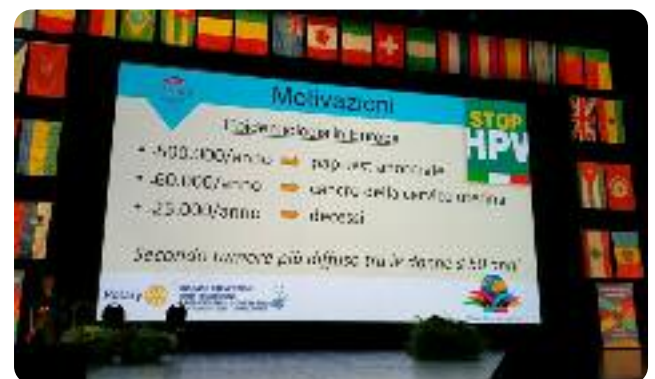 Motivazioni
STOP
HPV
Epidemiologia in Europa
• -500.000/anno ➡ pap test anormale
• -60.000/anno ➡ cancro della cervice uterina
• -25.000/anno ➡ decessi
Secondo tumore più diffuso tra le donne 50 anni
Rotary